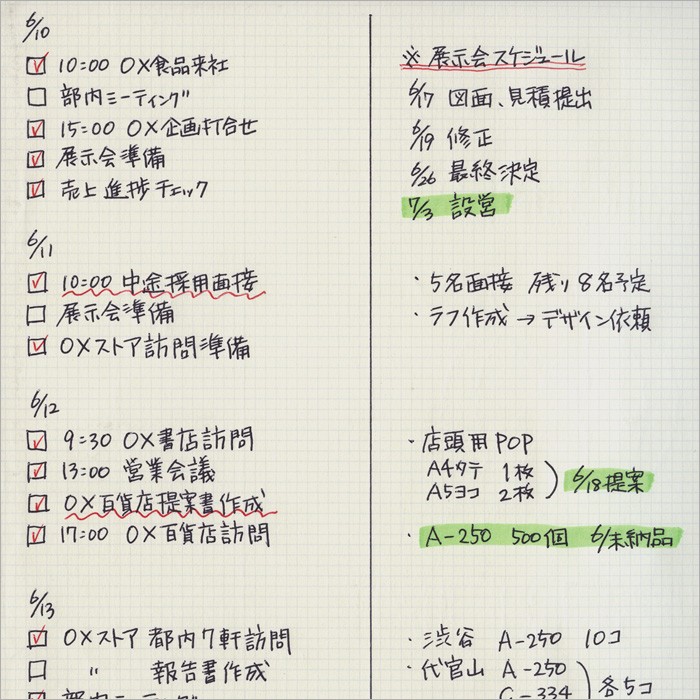 6/10
10:00 〇×食品来社
部内ミーティング
15:00 〇×企画打合せ
展示会準備
売上進捗チェック
6/11
10:00 中途採用面接
展示会準備
〇×ストア訪問準備
6/12
9:30 〇×書店訪問
13:00 営業会議
〇×百貨店提案書作成
17:00 〇×百貨店訪問
6/13
〇×ストア 都内7軒訪問
〃 報告書作成
部内ミーティング
※ 展示会スケジュール
6/17 図面、見積提出
6/19 修正
6/26 最終決定
7/3 設営
・5名面接 残り8名予定
・ラフ作成→デザイン依頼
・店頭用POP
A4タテ 1枚
A5ヨコ 2枚
6/18提案
・A-250 500個 6/末納品
・渋谷 A-250 10コ
・代官山 A-250
C-334
各5コ